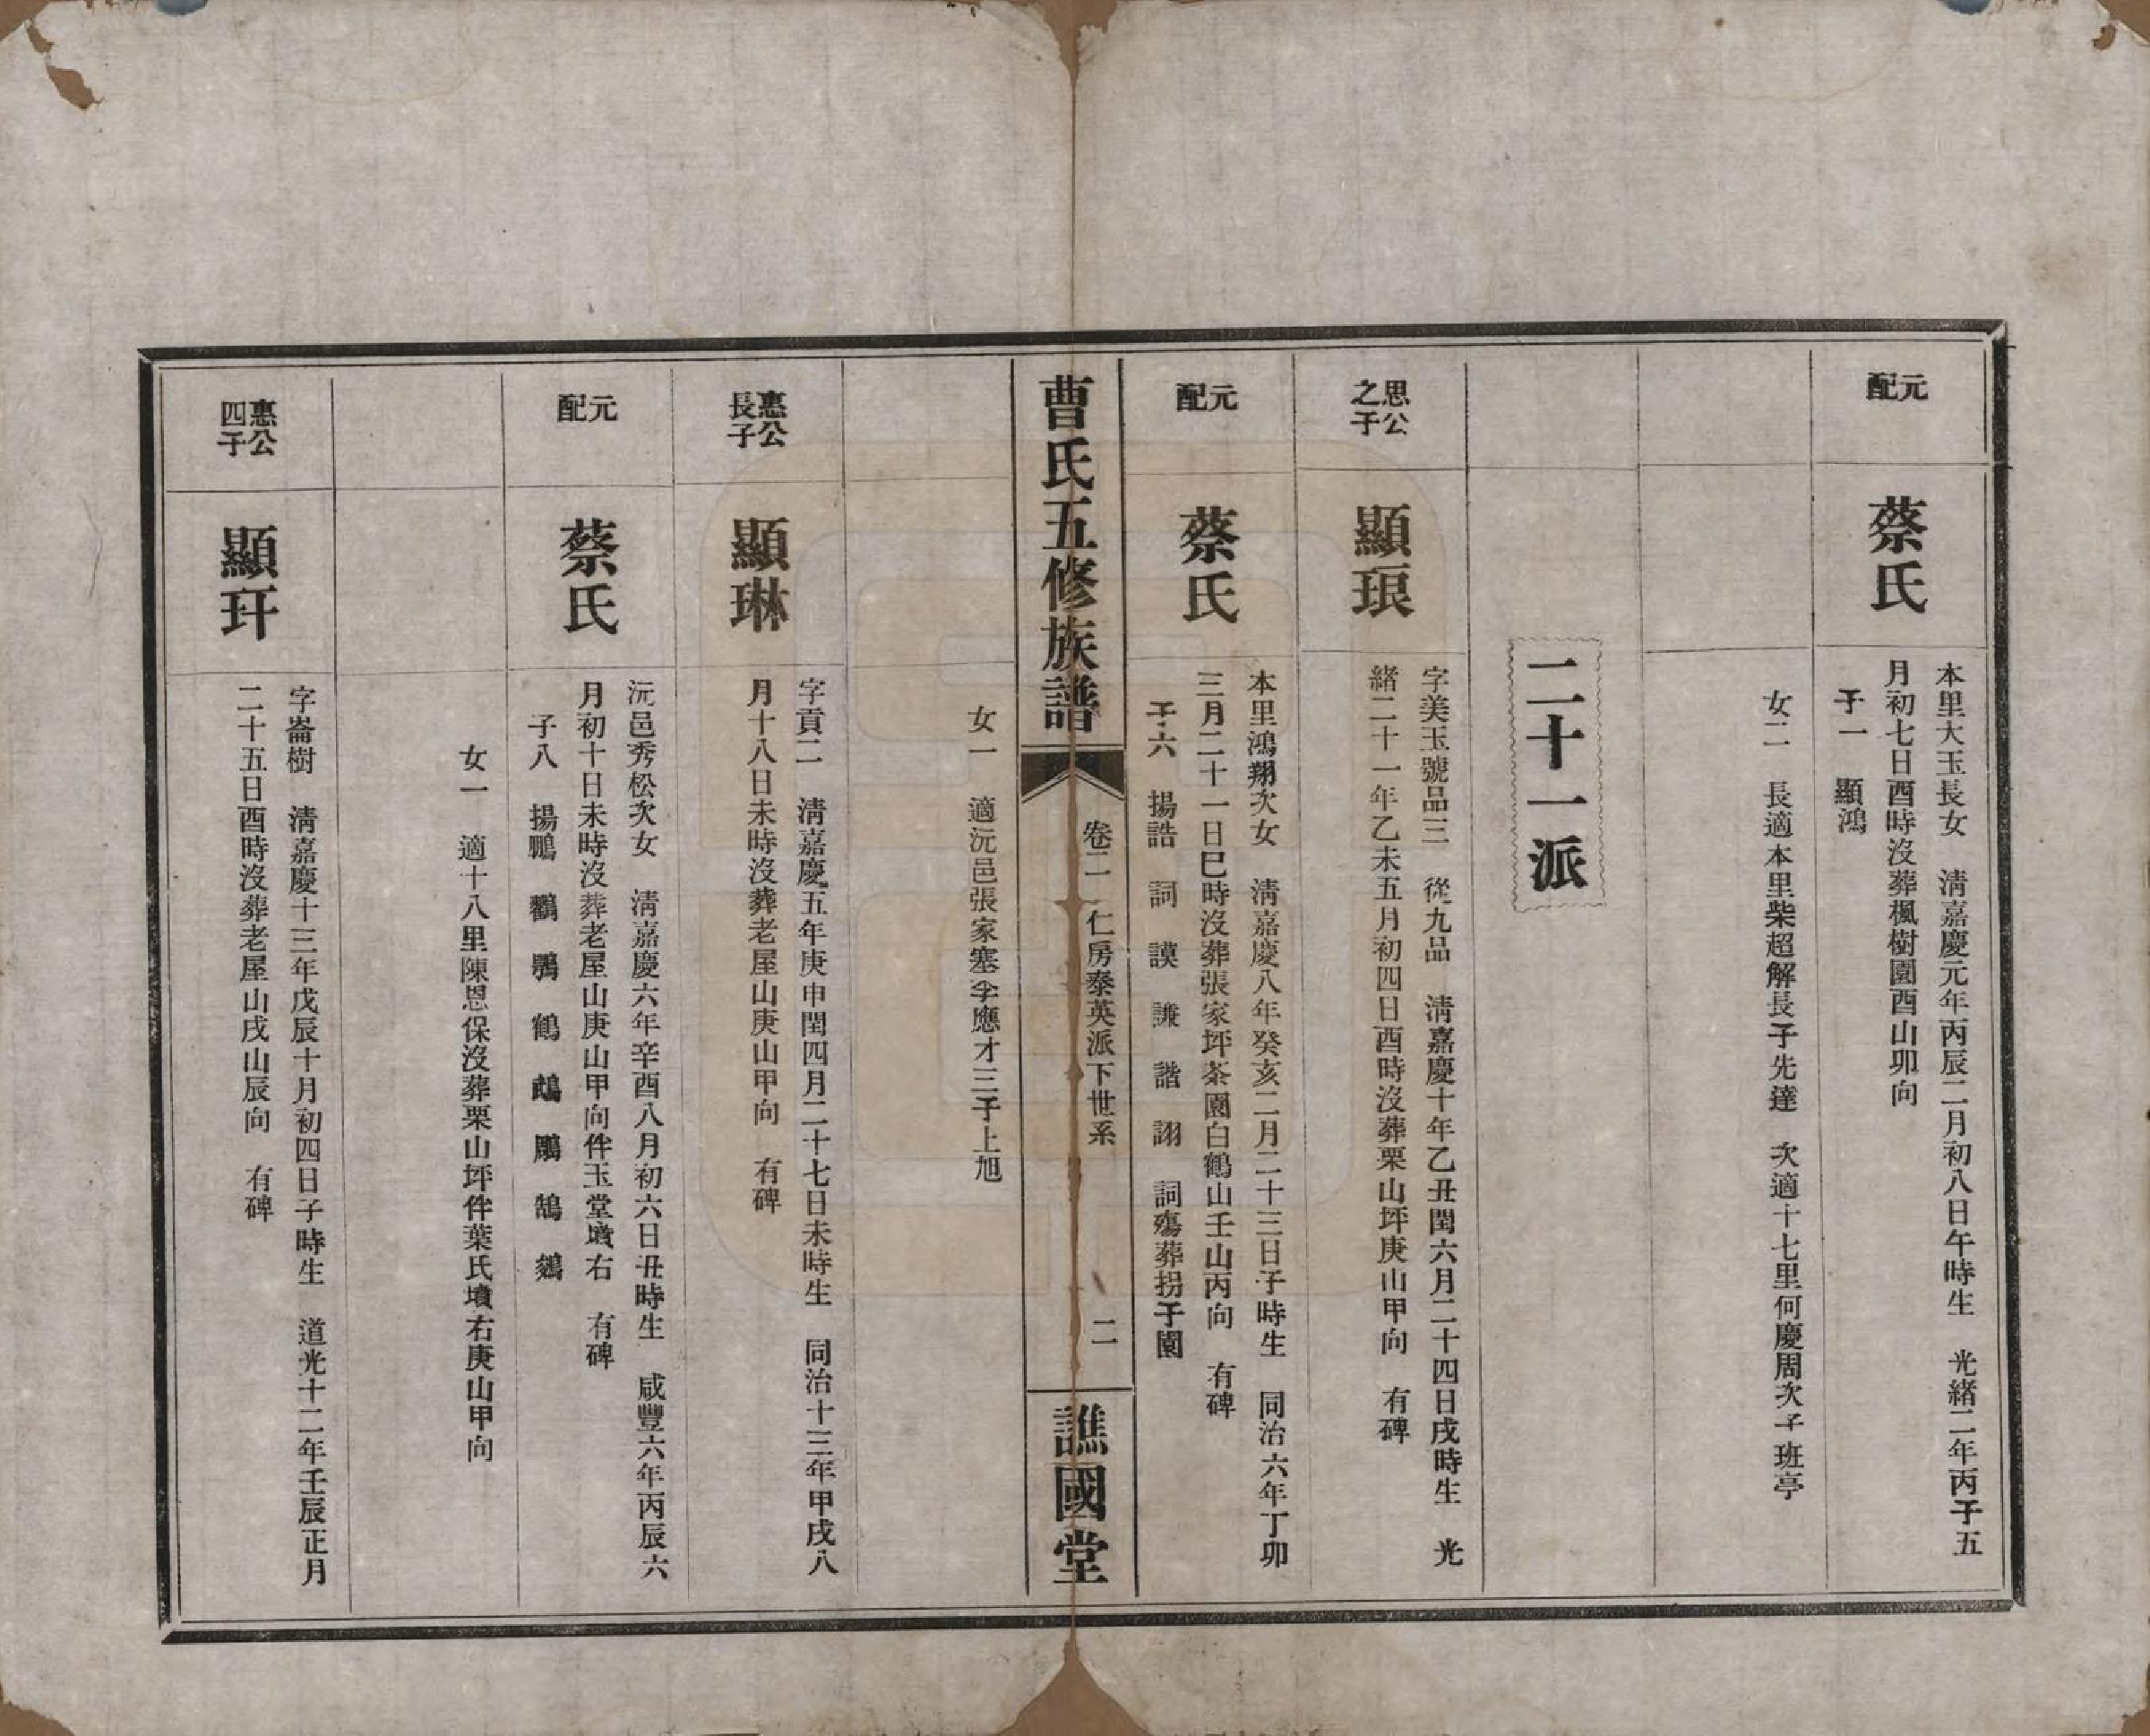 元配
蔡氏
本里大玉長女　清嘉慶元年丙辰二月初八日午時生　光緒二年丙子五
月初七日酉時沒葬楓樹園酉山卯向
子一　顯鴻
女二　長適本里柴超解長子先達　次適十七里何慶周次子班亭
二十一派
思公之子
顯琅
字美玉號品三　從九品　清嘉慶十年乙丑閏六月二十四日戌時生　光
緒二十一年乙未五月初四日酉時沒葬栗山坪庚山甲向　有碑
元配
蔡氏
本里鴻翔次女　清嘉慶八年癸亥二月二十三日子時生　同治六年丁卯
三月二十一日巳時沒葬張家坪茶園白鶴山壬山丙向　有碑
子六　揚誥　詞　謨　謙　諧　詡　詞殤葬拐子園
曹氏五修族譜
卷二　仁房泰英派下世系
二
譙國堂
女一　適沅邑張家塞李應才三子上旭
惠公長子
顯琳
字貢二　清嘉慶五年庚申閏四月二十七日未時生　同治十三年甲戌八
月十八日未時沒葬老屋山庚山甲向　有碑
元配
蔡氏
沅邑秀松次女　清嘉慶六年辛酉八月初六日丑時生　咸豐六年丙辰六
月初十日未時沒葬老屋山庚山甲向伴玉堂墳右　有碑
子八　揚鵬　鸛　鶚　鶴　鷗　鵰　鵠　鷄
女一　適十八里陳恩保沒葬栗山坪伴葉氏墳右庚山甲向
惠公四子
顯玕
字崙樹　清嘉慶十三年戊辰十月初四日子時生　道光十二年壬辰正月
二十五日酉時沒葬老屋山戌山辰向　有碑